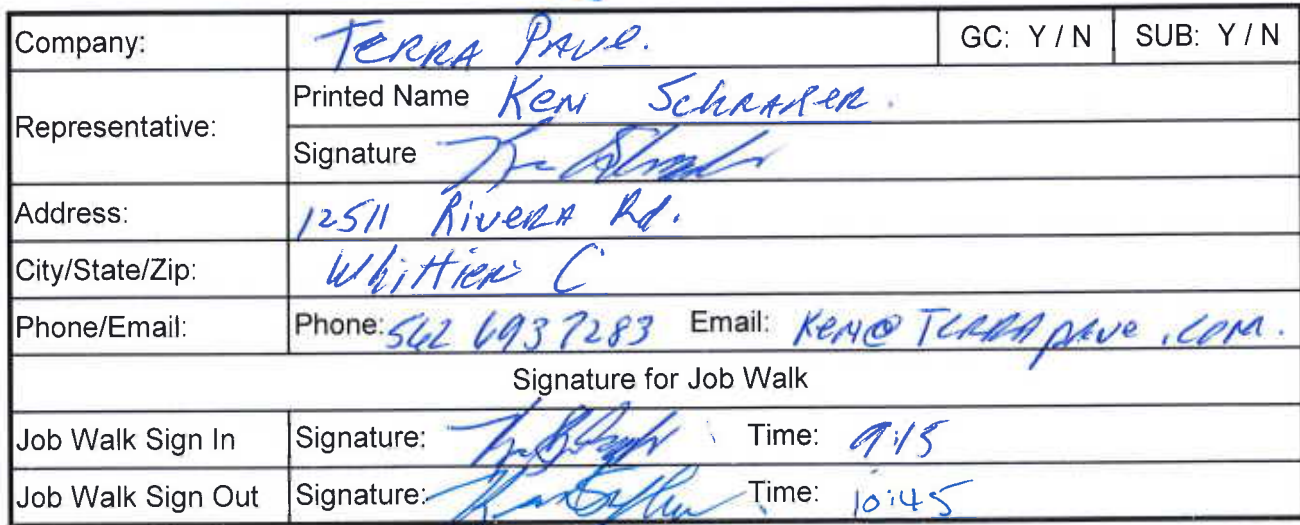 Company: TERRA PAVE. GC: Y / N SUB: Y / N
Representative: Printed Name Ken Schraper.
Signature
Address: 12511 Rivera Rd.
City/State/Zip: Whittier C
Phone/Email: Phone: 562 693 7283 Email: Ken@TERRApave.com.
Signature for Job Walk
Job Walk Sign In Signature: Time: 9:15
Job Walk Sign Out Signature: Time: 10:45